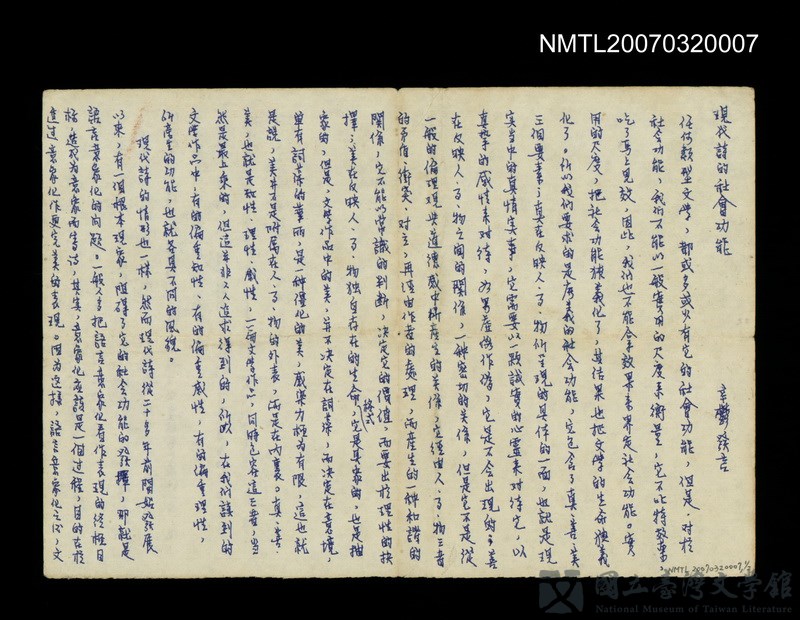 NMTL20070320007
現代詩的社會功能
辛鬱發言
任何類型文學，都或多或少有它的社會功能，但是，對於
社會功能，我們不能以一般實用的尺度來衡量，它不比特效藥
吃了馬上見效，因此，我們也不能全拿效果來界定社會功能。實
用的尺度，把社會功能狹義化了，其結果也把文學的生命狹義
化了。所以我們要求的是廣義的社會功能，它包含了真、善、美
三個要素；真在反映人、事、物所呈現的具体的一面，也就是現
實當中的真情實事，它需要以點誠實的心靈來對待它，以
真摯的感性來對待，如果虛偽作僞，它是不會出現的；善
在反映人、事、物之間的關係，一種密切的关係，但是它不是從
一般的倫理現與道德感中所產生的关係，它經由人、事、物三者
的矛盾、衝突、對立，再經由作者的處理，而產生的一種和諧的
關係，它不能以常識的判斷，決定它的價值，而要出於理性的抉
擇；美在反映人、事、物独自存在的生命形式，它是具象的，也是抽
象的，但是，文學作品中的美，并不決定在詞藻，而決定在意境，
單有詞藻的華丽，是一種僵化的美，感染力極為有限，這也就
是說，美并不是附屬在人、事、物的外表，而是在內裏。真、善、
美，也就是知性、理性、感性，一篇文學作品，同時包容這三者，当
然是最上乘的，但這并非人人追求得到的，所以，在我們讀到的
文學作品中，有的偏重知性，有的偏重感性，有的偏重理性，
所產生的功能，也就各具不同的風貌。
現代詩的情形也一樣，然而現代詩從二十多年前開始發展
以來，有一個根本現象，阻碍了它的社会功能的發揮，那就是
語言意象化的問題。一般人多把語言意象化看作表現的終極目
標，造成為意象而意象，其實，意象化應該是一個过程，目的在於
透过意象化作更完美的表現。因为这樣，語言意象化之後，文
NMTL 20070320007 1/3
國立臺灣文學館
National Museum of Taiwan Literature